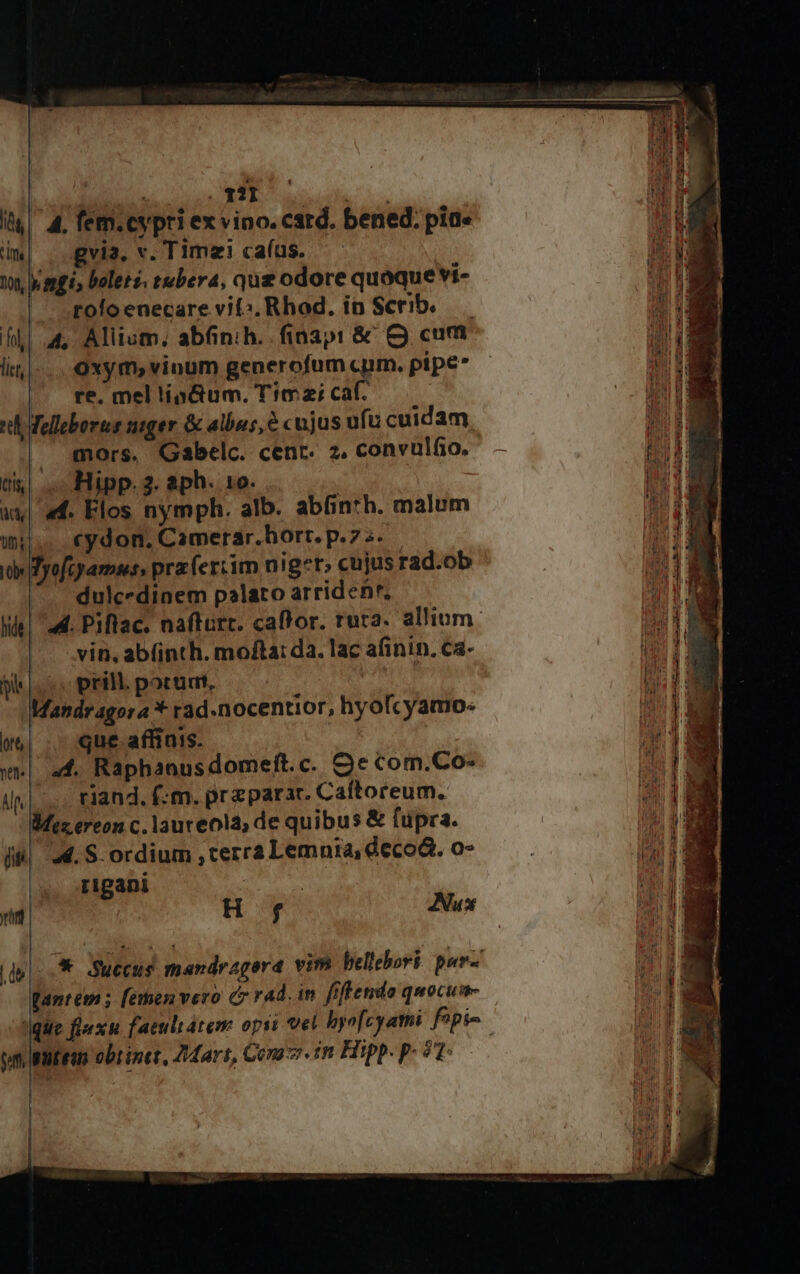 121
A. sem. cypri ex vino. card. bened. pin-
gvia, v. Timæi casus.
Fungi, boleti, tubera, quæ odore quoque vi-
roso enecare visi. Rhod. in Scrib.
A. Allium, absinth. sinapi & 🜔 cum
oxym, vinum generosum cum. pipe-
re. mel linctum. Timæi cas.
Helleborus niger & albus, è cujus usu cuidam
mors. Gabelc. cent. 2. convulsio.
Hipp. 3. aph. 10.
A. Flos nymph. alb. absinth. malum
cydon. Camerar. hort. p. 72.
Hyoscyamus, præsertim niger, cujus rad. ob
dulcedinem palato arrident,
A. Pistac. nasturt. castor. ruta. allium
vin, absinth. mostarda. lac asinin. ca-
prill. potum.
Mandragora * rad. nocentior, hyoscyamo-
que affinis.
A. Raphanus domest. c. 🜔e com. Co-
riand. sem. præparat. Castoreum.
Mezereon c. laureola, de quibus & supra.
A. S. ordium, terra Lemnia, decoct. o-
rigani
H 5 Nux
* Succus mandragoræ vim hellebori pur-
gantem; semen vero & rad. in sistendo quocun-
que fluxu facultatem opii vel hyoscyami sopi-
autem obtinet, Mart, Comm. in Hipp. p. 37.